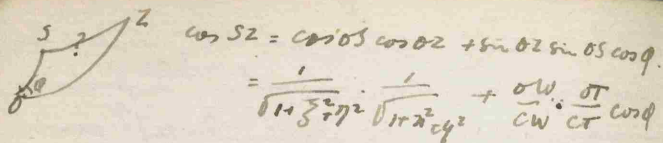 S ? Z cos SZ = cos OS cos OZ + sin OZ sin OS cos φ.
O φ = 1/√(1+ξ²+η²) · 1/√(1+x²+y²) + OW/CW · OT/CT cos φ